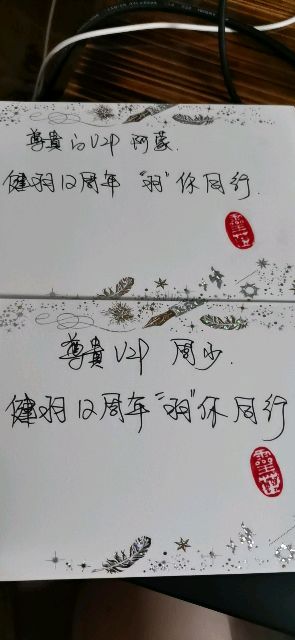 尊貴的VIP 阿蒙.
健羽12周年 "羽"你同行.
尊貴VIP 周少.
健羽12周年"羽"你同行